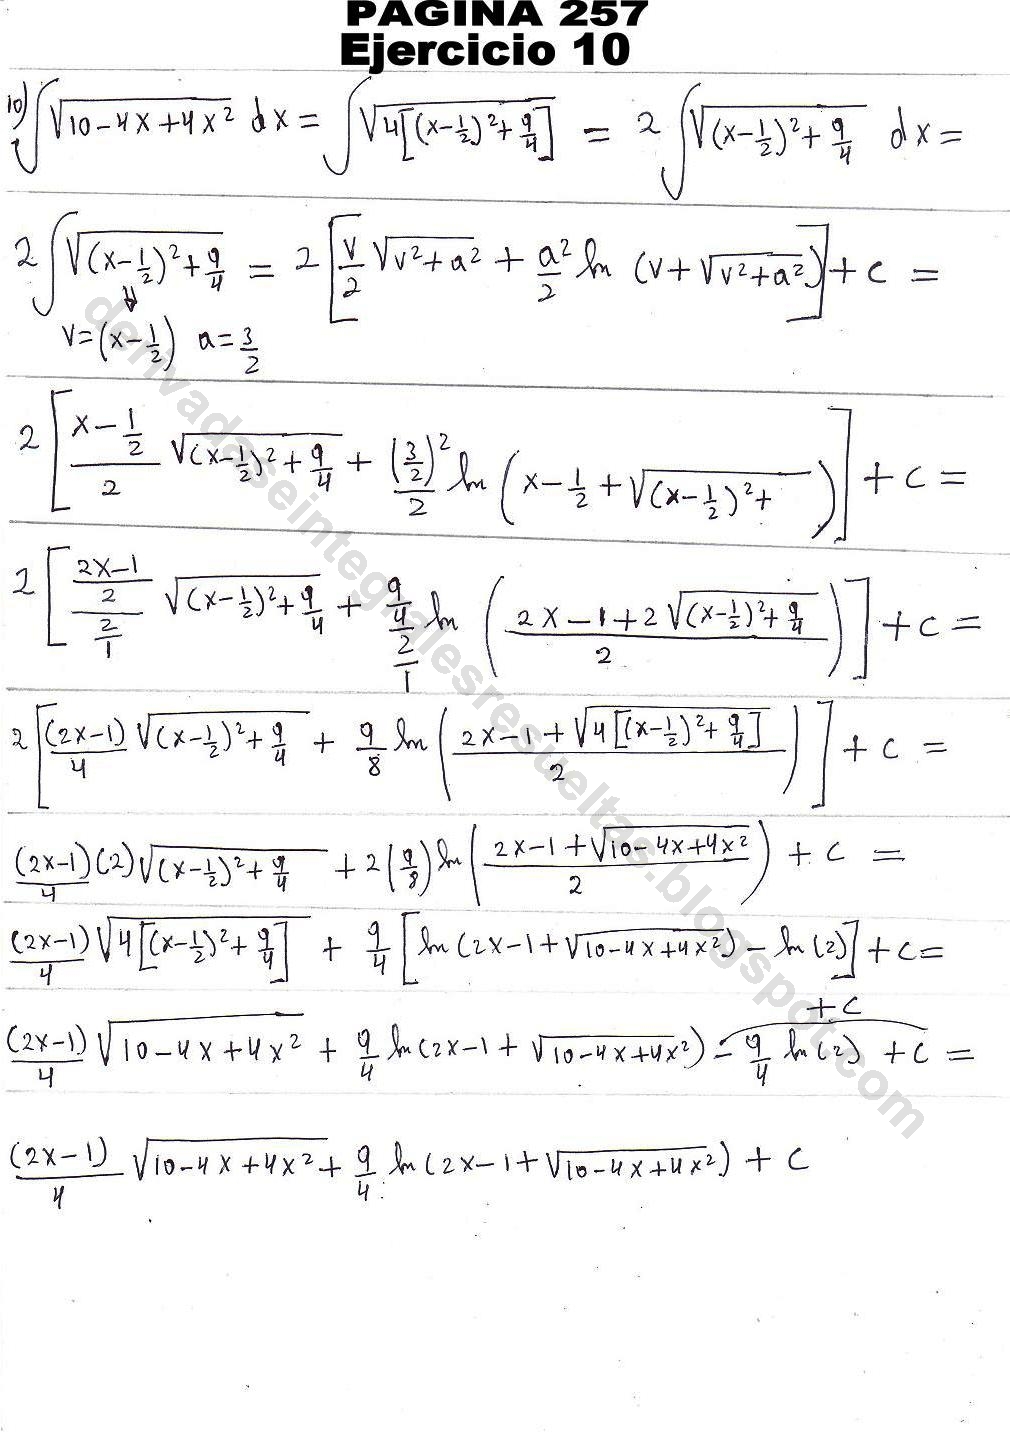 PAGINA 257
Ejercicio 10
10) ∫√(10-4x+4x²) dx = ∫√(4[(x-1/2)²+9/4]) = 2∫√((x-1/2)²+9/4) dx =
2∫√((x-1/2)²+9/4) = 2[v/2 √(v²+a²) + a²/2 ln (v+√(v²+a²))] + c =
v=(x-1/2) a=3/2
2[(x-1/2)/2 √((x-1/2)²+9/4) + (3/2)²/2 ln (x-1/2+√((x-1/2)²+ ))] + c =
2[((2x-1)/2)/(2/1) √((x-1/2)²+9/4) + (9/4)/(2/1) ln ((2x-1+2√((x-1/2)²+9/4))/2)] + c =
2[(2x-1)/4 √((x-1/2)²+9/4) + 9/8 ln ((2x-1+√(4[(x-1/2)²+9/4]))/2)] + c =
(2x-1)/4 (2)√((x-1/2)²+9/4) + 2(9/8) ln ((2x-1+√(10-4x+4x²))/2) + c =
(2x-1)/4 √(4[(x-1/2)²+9/4]) + 9/4 [ln (2x-1+√(10-4x+4x²)) - ln (2)] + c =
+c
(2x-1)/4 √(10-4x+4x²) + 9/4 ln (2x-1+√(10-4x+4x²)) - 9/4 ln (2) + c =
(2x-1)/4 √(10-4x+4x²) + 9/4 ln (2x-1+√(10-4x+4x²)) + c
derivadaseintegralesresueltas.blogspot.com